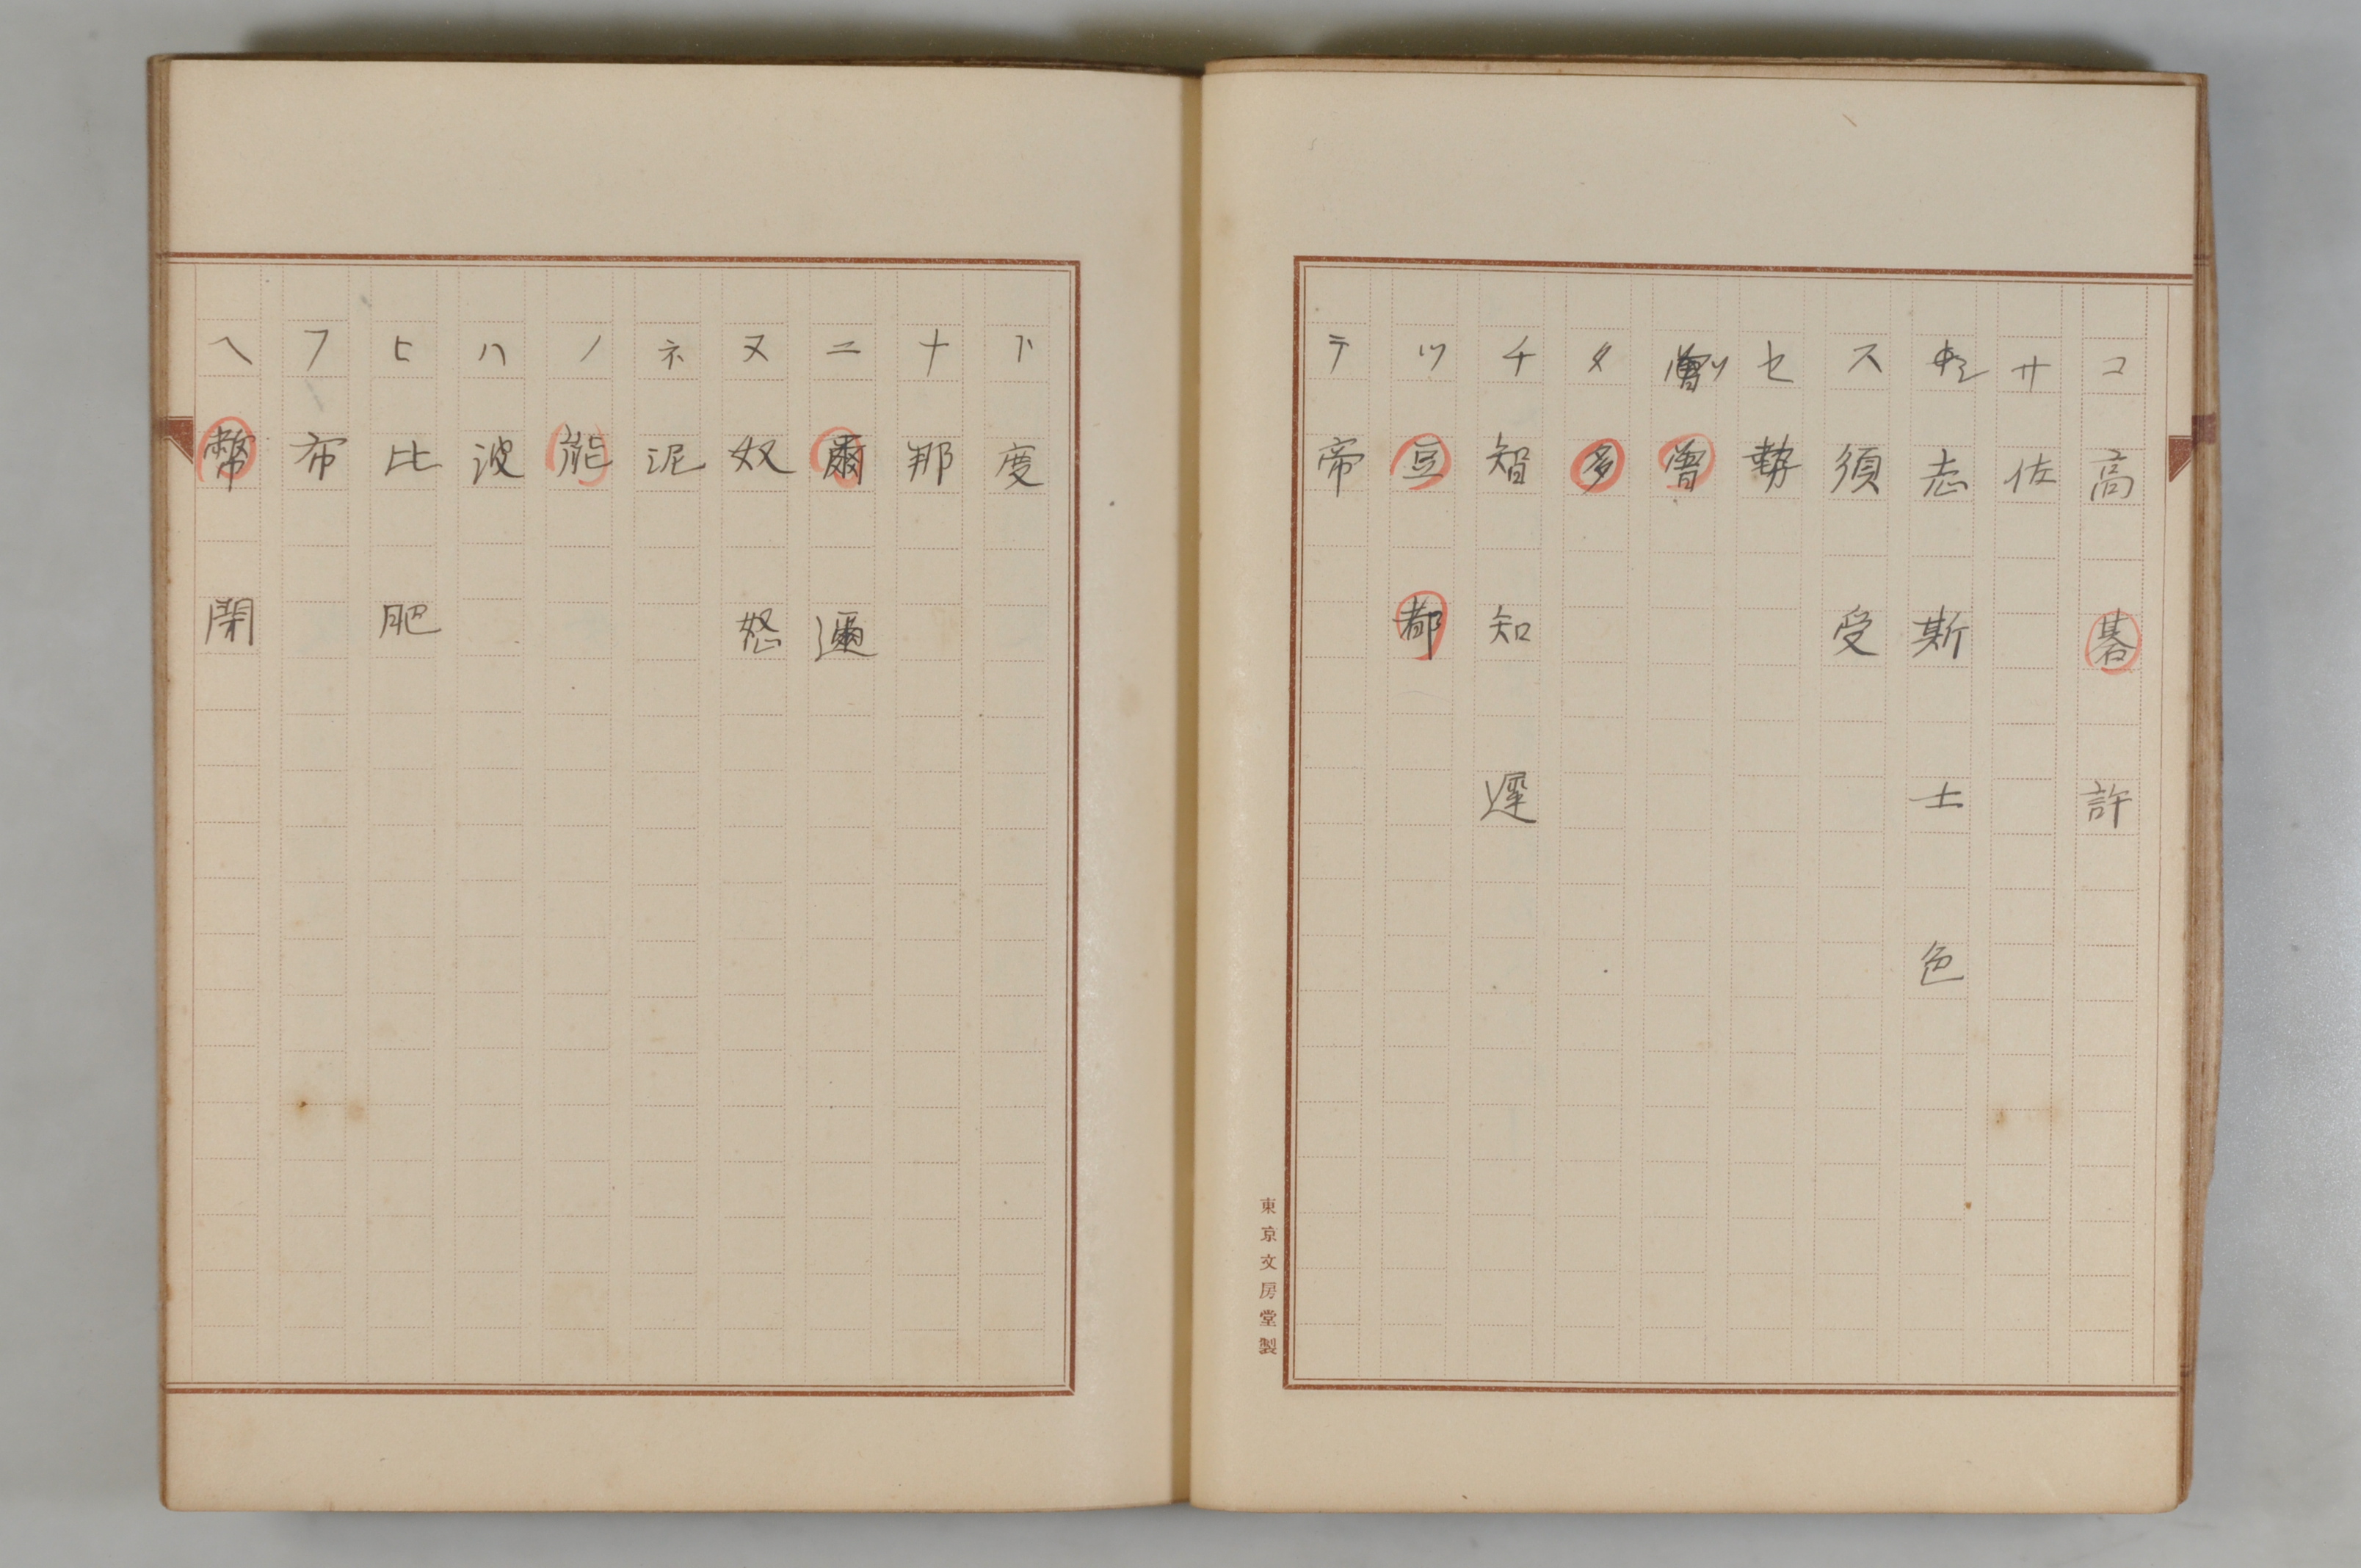 コ 高 碁 許
サ 佐
シ 志 斯 士 色
ス 須 受
セ 勢
ソ 曾
タ 多
チ 智 知 遲
ツ 豆 都
テ 帝
東京文房堂製
ト 度
ナ 那
ニ 爾 邇
ヌ 奴 怒
ネ 泥
ノ 能
ハ 波
ヒ 比 肥
フ 布
ヘ 幣 閇